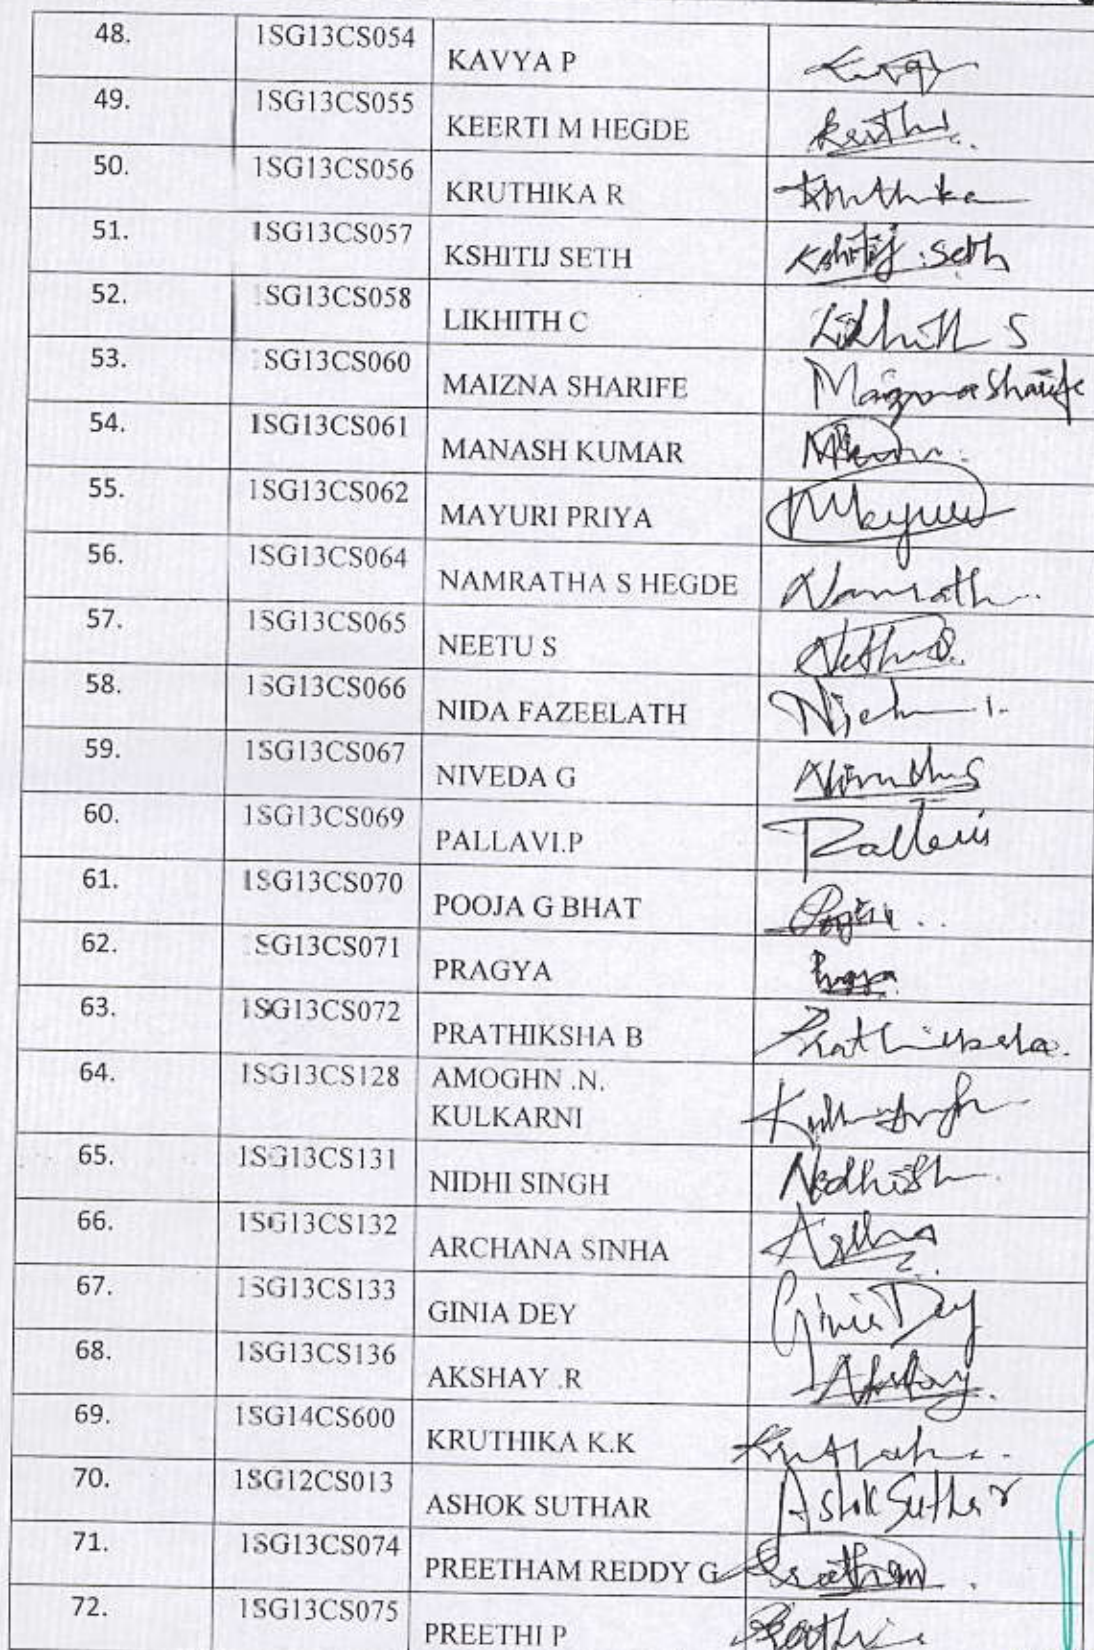 48. 1SG13CS054 KAVYA P
49. 1SG13CS055 KEERTI M HEGDE
50. 1SG13CS056 KRUTHIKA R Kruthika
51. 1SG13CS057 KSHITIJ SETH Kshitij Seth
52. SG13CS058 LIKHITH C Likhith S
53. SG13CS060 MAIZNA SHARIFE Maizna Sharife
54. 1SG13CS061 MANASH KUMAR
55. 1SG13CS062 MAYURI PRIYA Mayuri
56. 1SG13CS064 NAMRATHA S HEGDE Namrath
57. 1SG13CS065 NEETU S
58. 1SG13CS066 NIDA FAZEELATH
59. 1SG13CS067 NIVEDA G
60. 1SG13CS069 PALLAVI.P Pallavi
61. 1SG13CS070 POOJA G BHAT
62. SG13CS071 PRAGYA Pragya
63. 1SG13CS072 PRATHIKSHA B Prathiksha.
64. 1SG13CS128 AMOGHN .N.
KULKARNI
65. 1SG13CS131 NIDHI SINGH
66. 1SG13CS132 ARCHANA SINHA
67. 1SG13CS133 GINIA DEY Ginia Dey
68. 1SG13CS136 AKSHAY .R Akshay.
69. 1SG14CS600 KRUTHIKA K.K
70. 1SG12CS013 ASHOK SUTHAR Ashok Suthar
71. 1SG13CS074 PREETHAM REDDY G
72. 1SG13CS075 PREETHI P